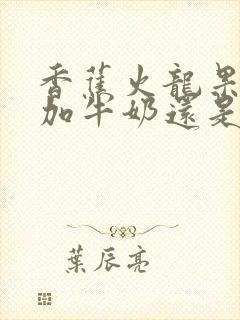 香蕉火龍果
加牛奶還是
葉辰亮